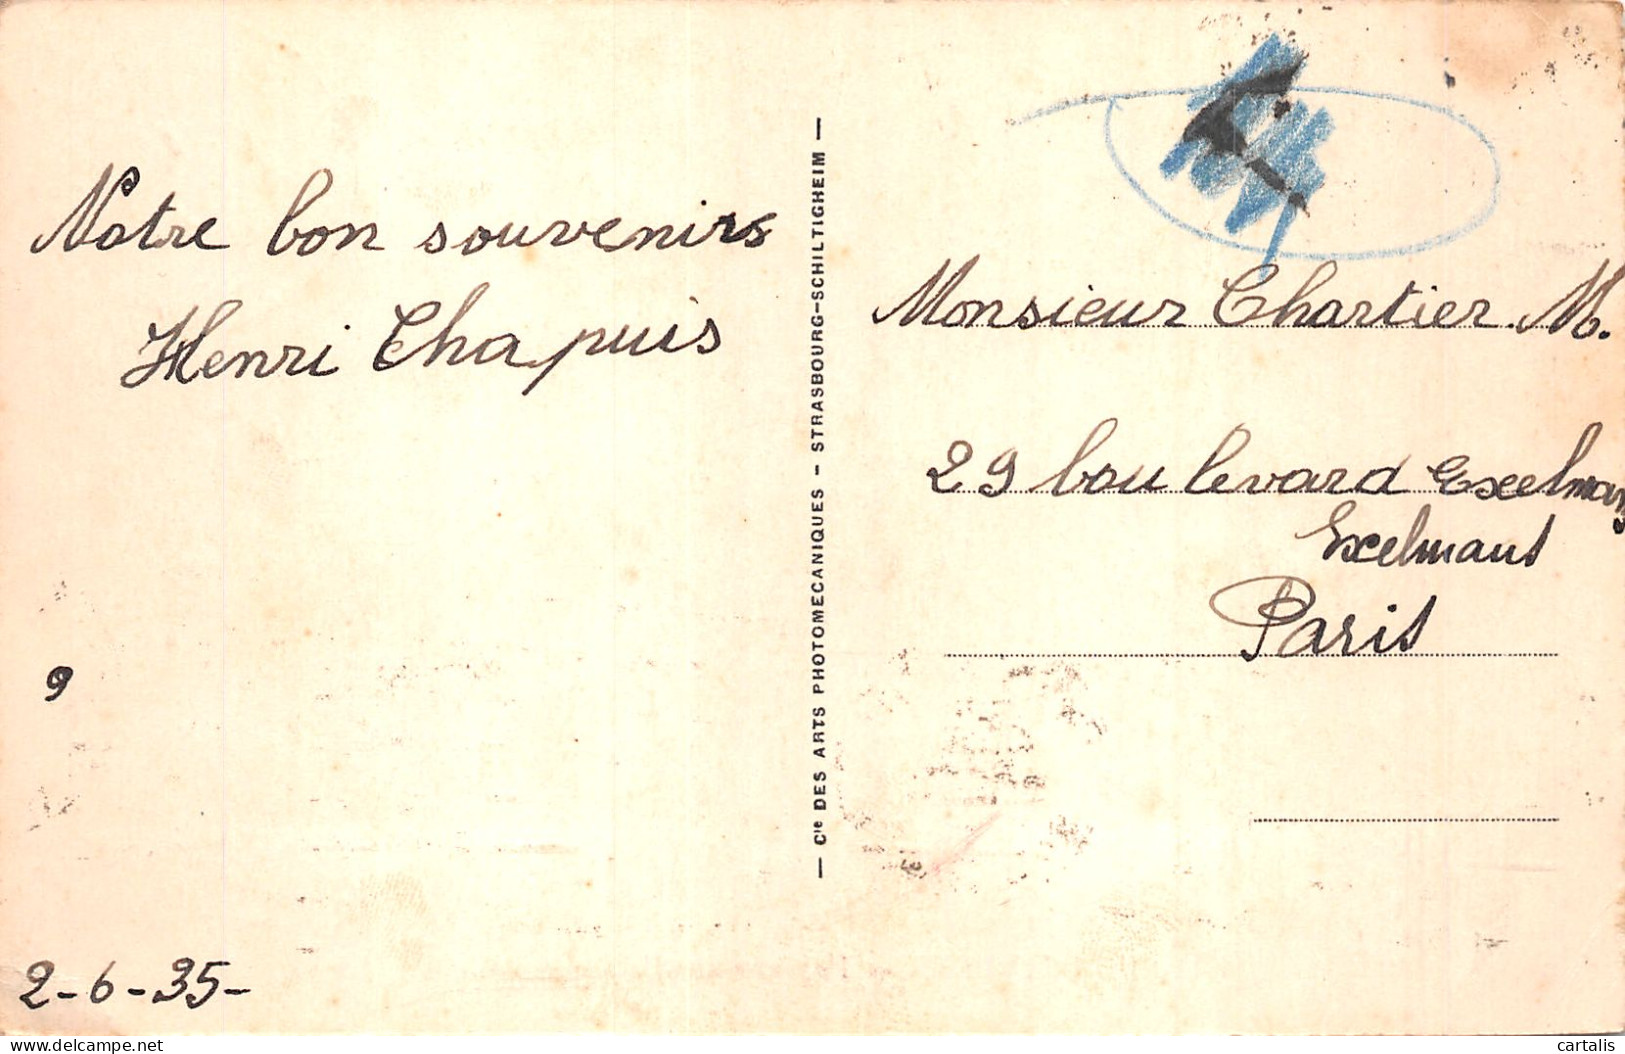 Notre bon souvenirs
Henri Chapuis
9
2-6-35-
— Cie DES ARTS PHOTOMECANIQUES - STRASBOURG-SCHILTIGHEIM —
Monsieur Chartier. M.
29 boulevard Exelmans
Exelmans
Paris
www.delcampe.net
cartalis